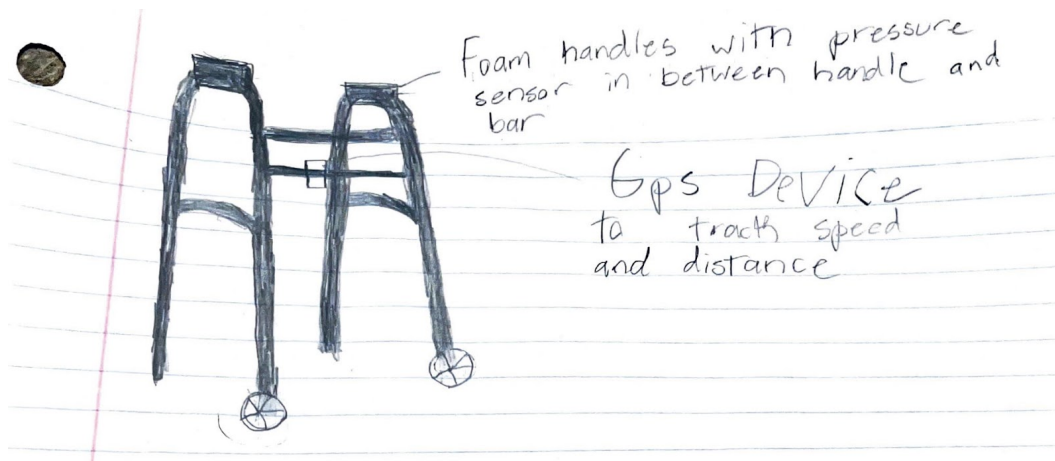 Foam handles with pressure
sensor in between handle and
bar
Gps Device
to tracth speed
and distance